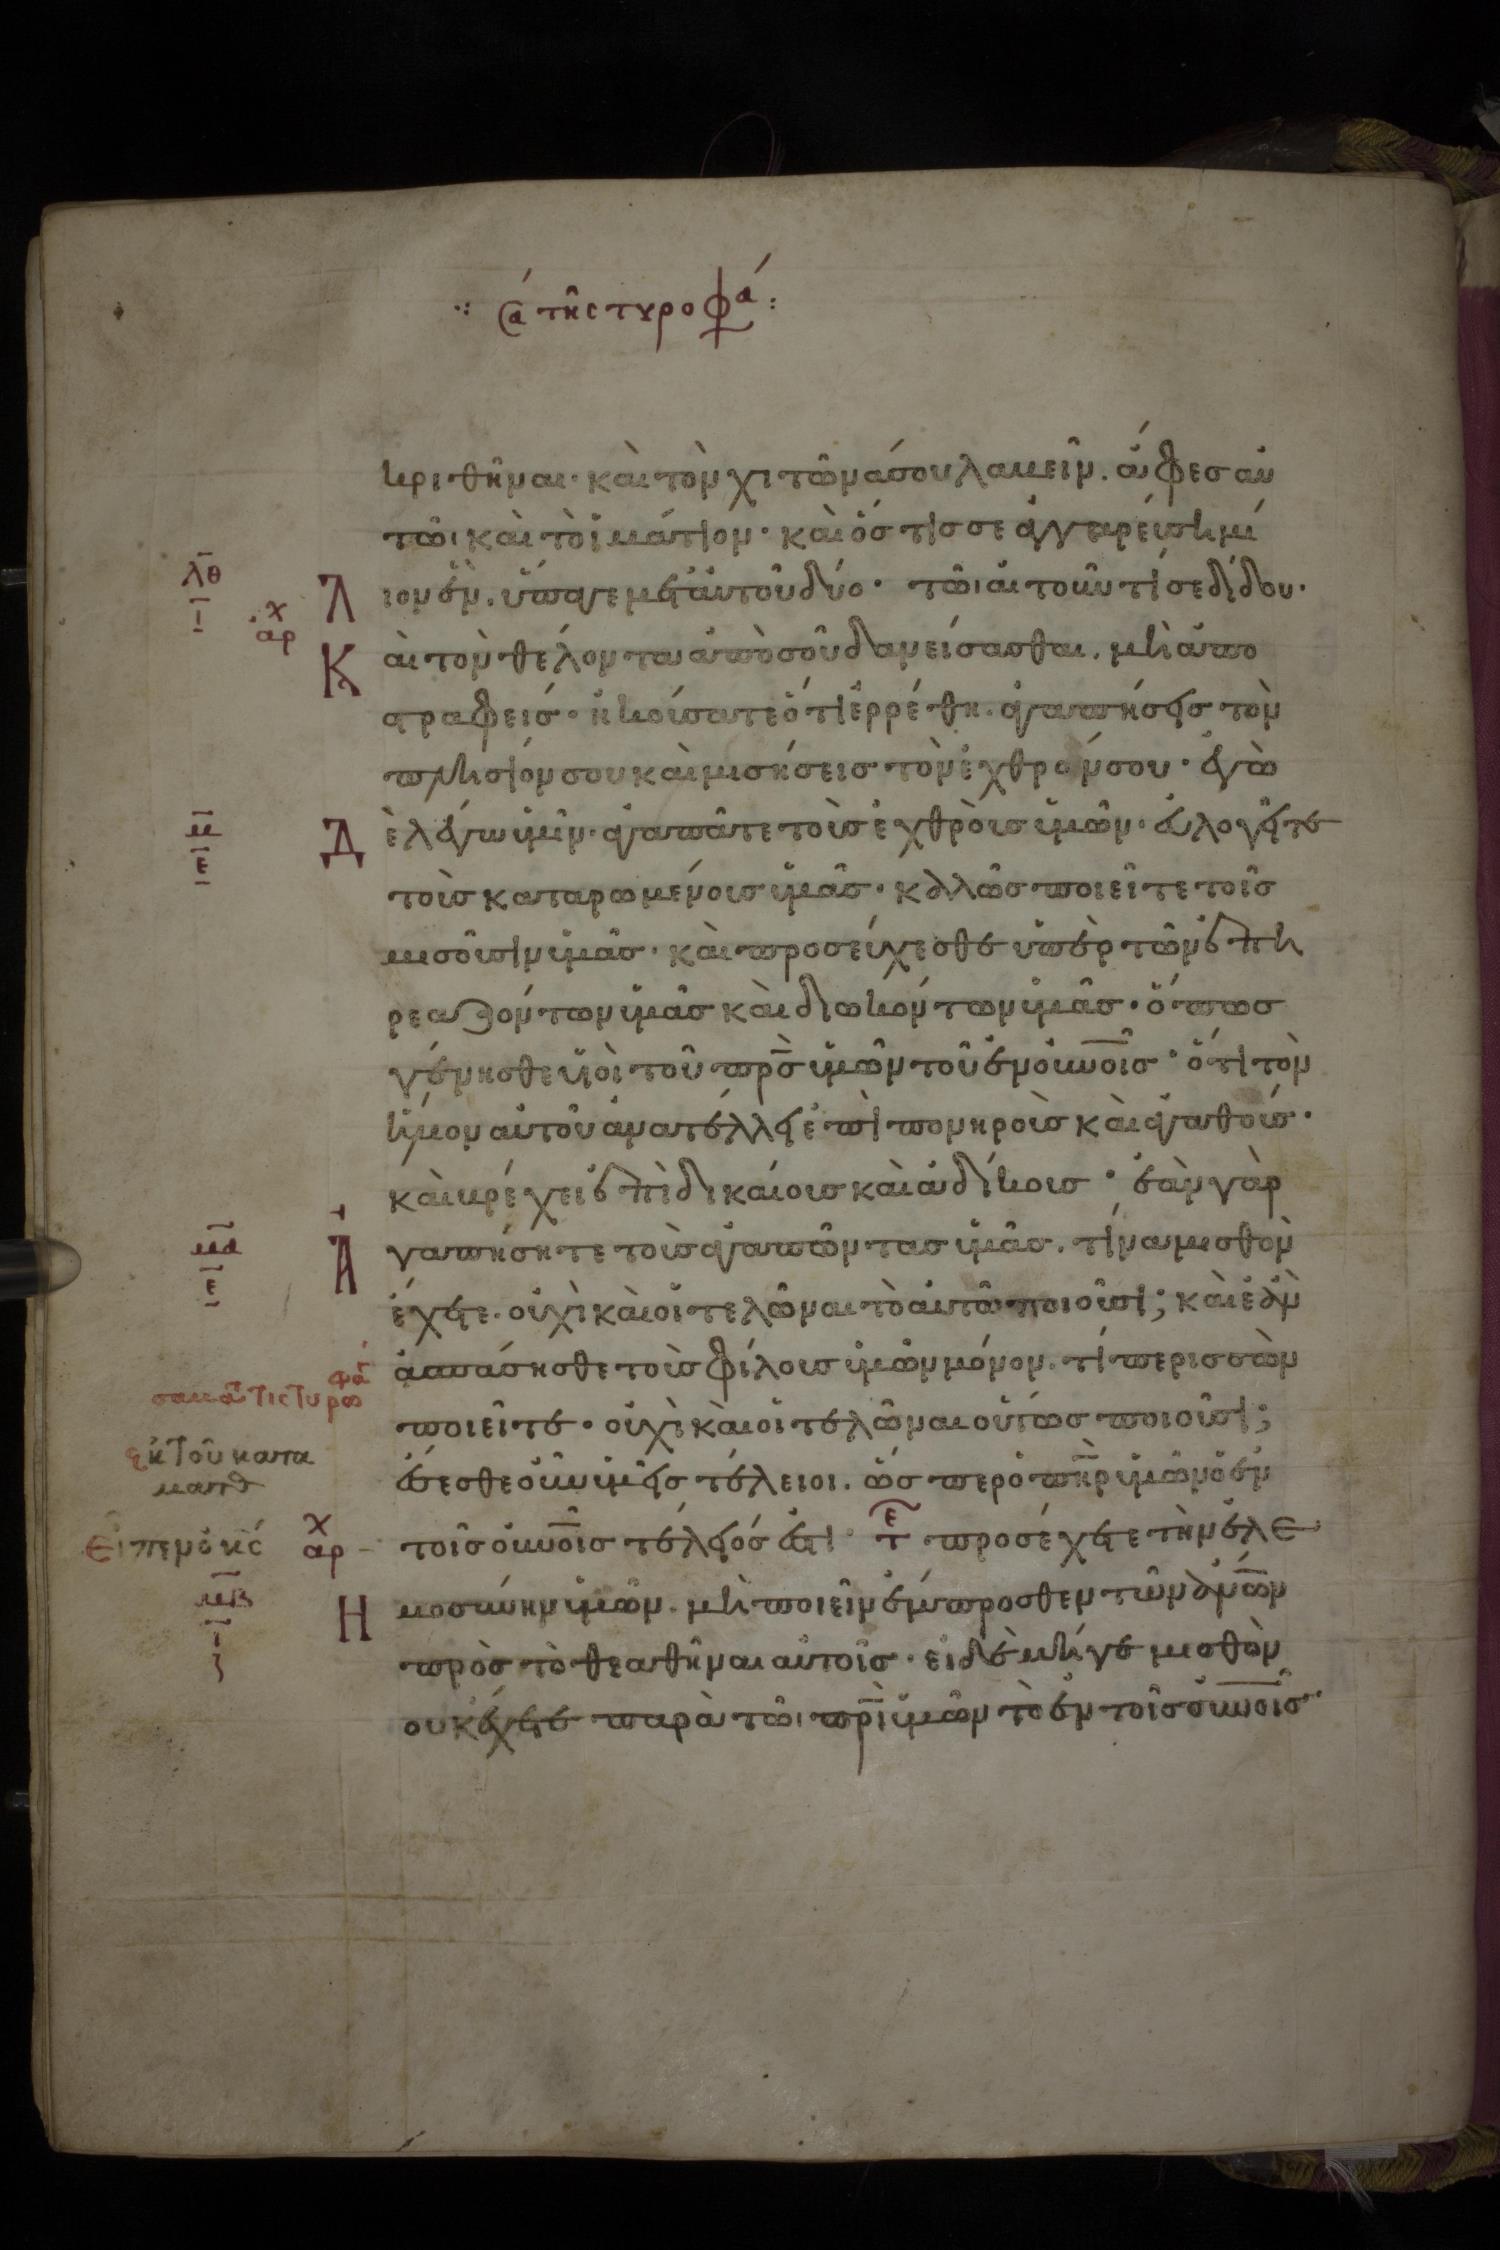 σα τῆς τυροφα:
κριθῆναι· καὶ τὸν χιτῶνά σου λαβεῖν. ἄφες αὐ
τῶι καὶ τὸ ἱμάτιον· καὶ ὅστις σε ἀγγαρεύση μί
λθ
ι
Λ ιον ἓν. ὕπαγε μετ αὐτοῦ δύο· τῶι αἰτοῦντί σε δίδου.
χ
αρ
Κ αὶ τὸν θέλοντα ἀπὸ σοῦ δανείσασθαι. μὴ ἀπο
στραφεῖς· ἠκούσατε ὅτι ἐρρέθη. ἀγαπήσεις τὸν
πλησίον σου καὶ μισήσεις τὸν ἐχθρόν σου· ἐγὼ
μ
ε
Δ ὲ λέγω ὑμῖν· ἀγαπᾶτε τοὺς ἐχθροὺς ὑμῶν· εὐλογεῖτε
τοὺς καταρωμένους ὑμᾶς· καλῶς ποιεῖτε τοῖς
μισοῦσιν ὑμᾶς· καὶ προσεύχεσθε ὑπὲρ τῶν ἐπη
ρεαζόντων ὑμᾶς καὶ διωκόντων ὑμᾶς· ὅπως
γένησθε υἱοὶ τοῦ πρς ὑμῶν τοῦ ἐν οὐνοῖς· ὅτι τὸν
ἥλιον αὐτοῦ ἀνατέλλει ἐπὶ πονηροὺς καὶ ἀγαθούς.
καὶ βρέχει ἐπὶ δικαίους καὶ ἀδίκους· ἐὰν γὰρ
μα
ε
Α γαπήσητε τοὺς ἀγαπῶντας ὑμᾶς. τίνα μισθὸν
ἔχετε. οὐχὶ καὶ οἱ τελῶναι τὸ αὐτὸ ποιοῦσι; καὶ ἐὰν
ἀσπάσησθε τοὺς φίλους ὑμῶν μόνον. τί περισσὸν
ποιεῖτε· οὐχὶ καὶ οἱ τελῶναι οὕτως ποιοῦσι;
ἐκ τοῦ κατα
ματθ
ἔσεσθε οὖν ὑμεῖς τέλειοι. ὥσπερ ὁ πηρ ὑμῶν ὁ ἐν
εἶπεν ὁ κς
χ
αρ
τοῖς οὐνοῖς τέλειός ἐστι· τε προσέχετε τὴν ἐλε
μβ
ι
Η μοσύνην ὑμῶν. μὴ ποιεῖν ἔμπροσθεν τῶν ἀνων
πρὸς τὸ θεαθῆναι αὐτοῖς· εἰ δὲ μήγε μισθὸν
ουκ ἔχετε παρὰ τῶι πρι ὑμῶν τῷ ἐν τοῖς οὐνοῖς·